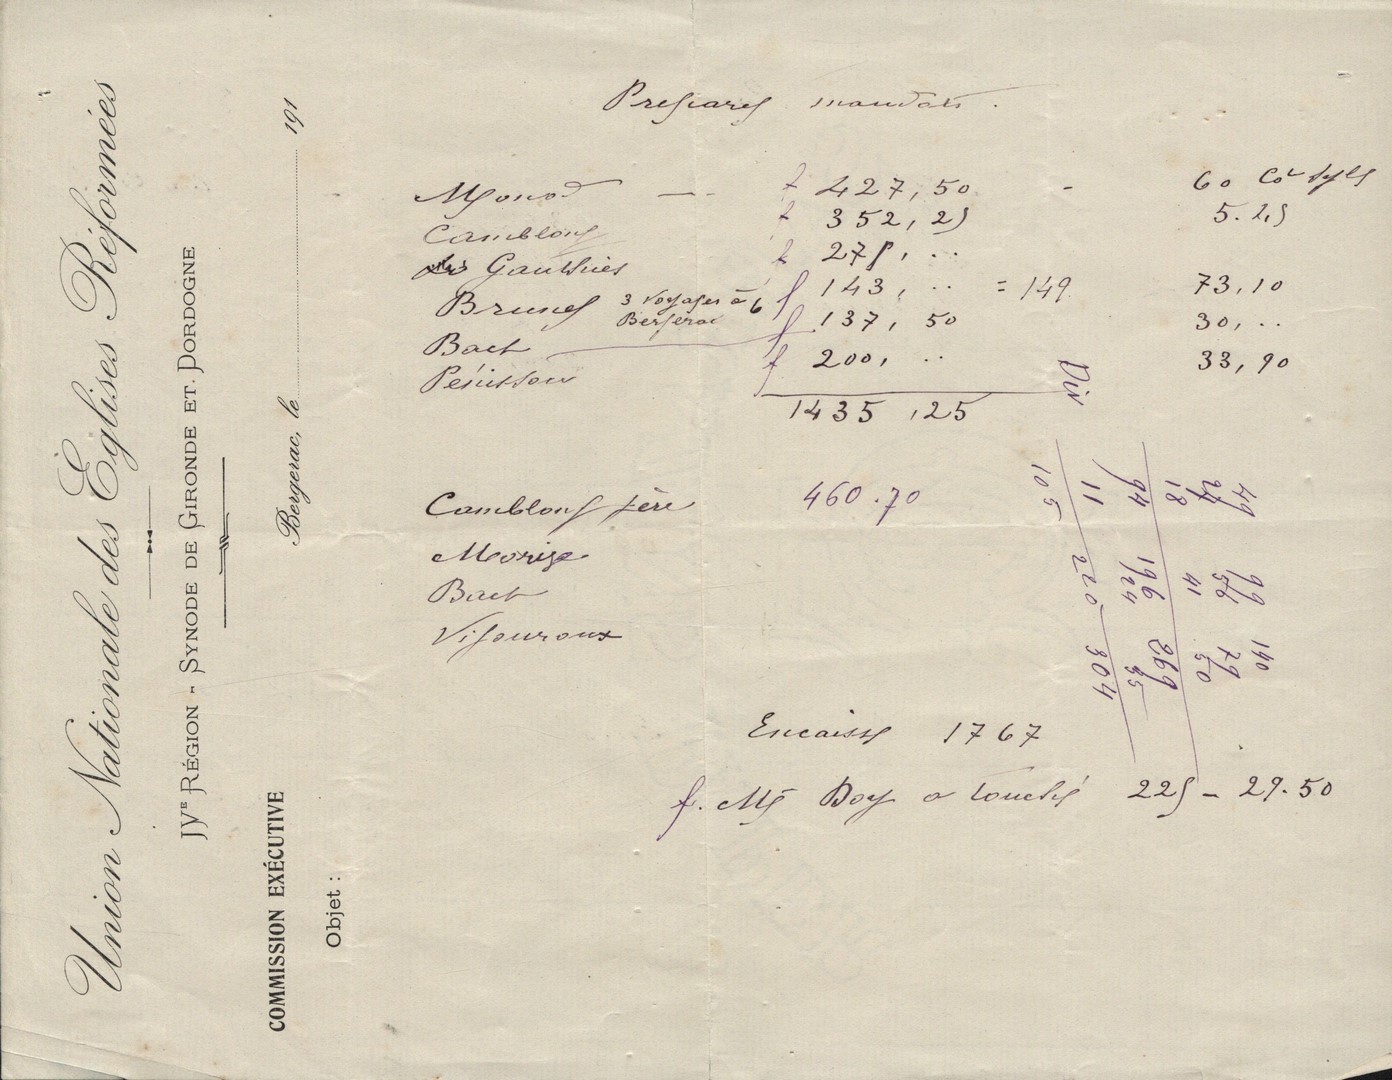 Union Nationale des Églises Réformées
IVe RÉGION - SYNODE DE GIRONDE ET DORDOGNE
COMMISSION EXÉCUTIVE
Bergerac, le 191
Objet :
mandats.
Monod — f 427,50 - 60
Camblong f 352,25 5.25
Gauthier f 275, ..
Brunel 3 voyages à 6 f 143, .. = 149 73,10
Bergerac
Bact f 137,50 30, ..
Pénisson f 200, .. 33,90
1435,125
Camblong père 460.70
Morize
Bact
Vigouroux
49 99 140
29 56 79
18 41 50
94 196 269
11 24 35
105 220 304
Div
Encaissé 1767
f. Boy a touché 225 - 29.50